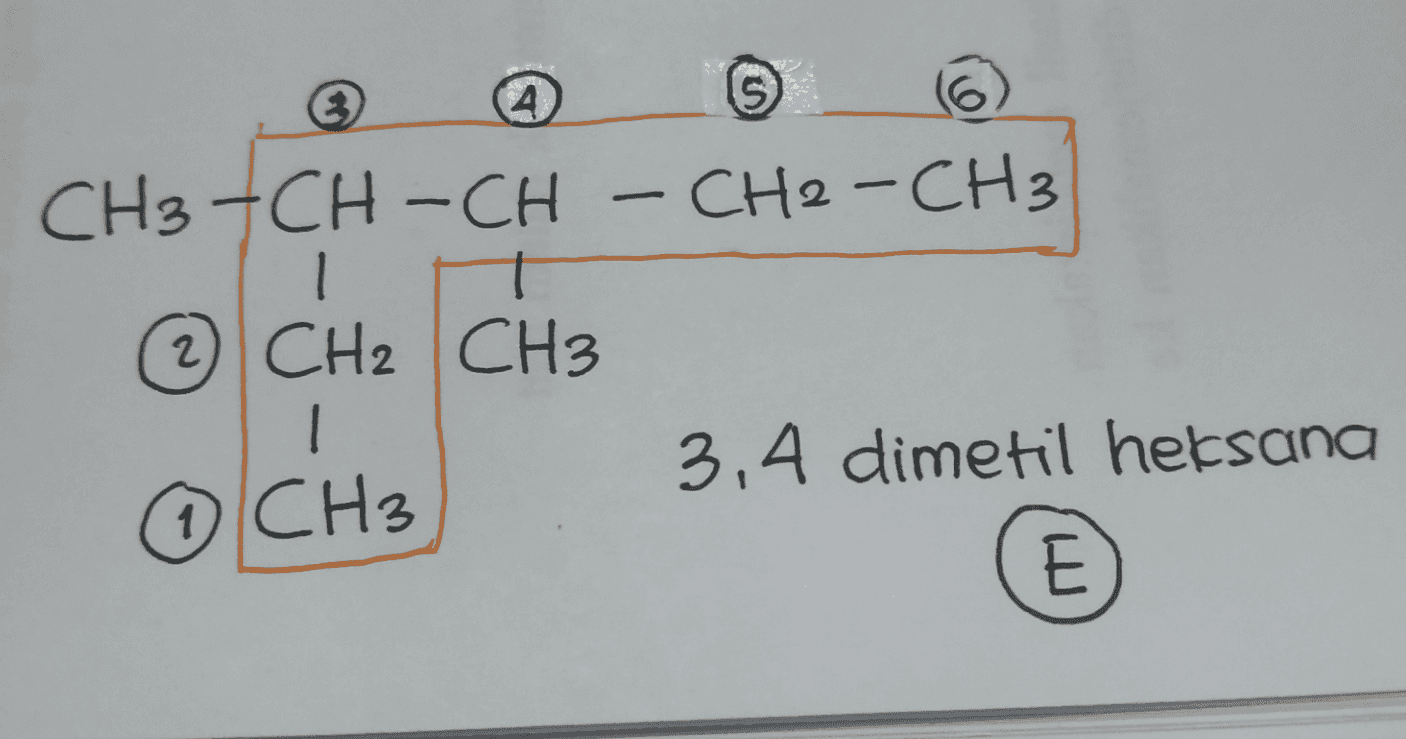 ③ ④ ⑤ ⑥
CH3 - CH - CH - CH2 - CH3
| |
② CH2 CH3
|
① CH3
3,4 dimetil heksana
E